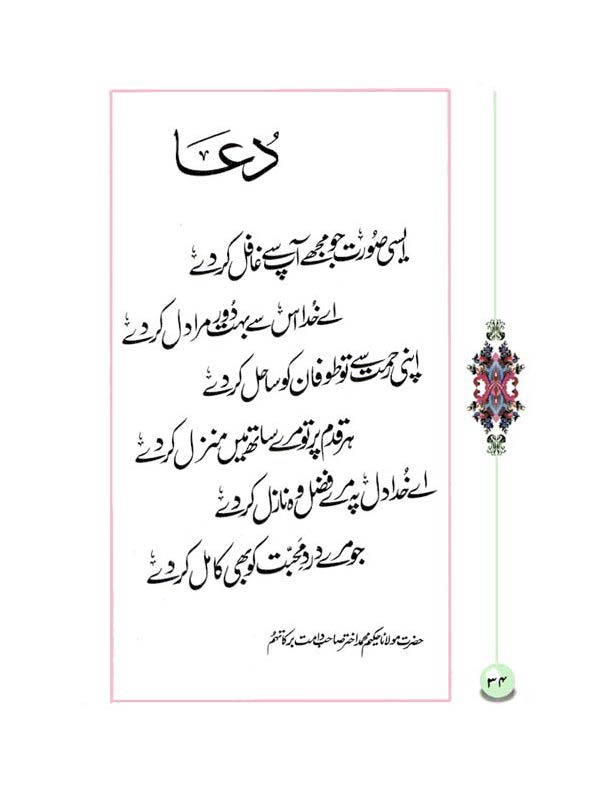 دُعا
ایسی صُورت جو مجھے آپ سے غافل کر دے
اے خُدا اس سے بہت دُور مرا دل کر دے
اپنی رحمت سے تو طوفان کو ساحل کر دے
ہر قدم پر تو مرے ساتھ میں منزل کر دے
اے خُدا دل پہ مرے فضل وہ نازل کر دے
جو مرے دردِ محبّت کو بھی کامل کر دے
حضرت مولانا حکیم محمد اختر صاحب دامت برکاتہم
۳۴